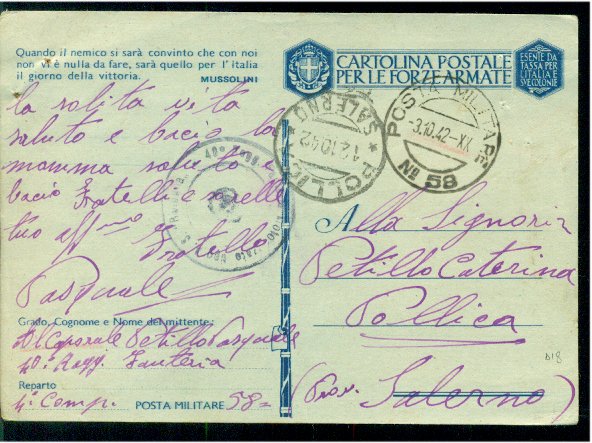 Quando il nemico si sarà convinto che con noi
non vi è nulla da fare, sarà quello per l'Italia
il giorno della vittoria.
MUSSOLINI
la solita vita
saluto e bacio la
mamma saluto e
bacio Fratelli e sorelle
tuo aff.mo
Fratello
Pasquale
Grado, Cognome e Nome del mittente:
Caporale Petillo Pasquale
40° Regg. Fanteria
Reparto
4a Comp. POSTA MILITARE 58=
CARTOLINA POSTALE
PER LE FORZE ARMATE
ESENTE DA
TASSA PER
L'ITALIA E
SUE COLONIE
POLLICA * SALERNO *
12.10.42
POSTA MILITARE
-3.10.42-XX
No 58
Alla Signorina
Petillo Caterina
Pollica
(Prov. Salerno)